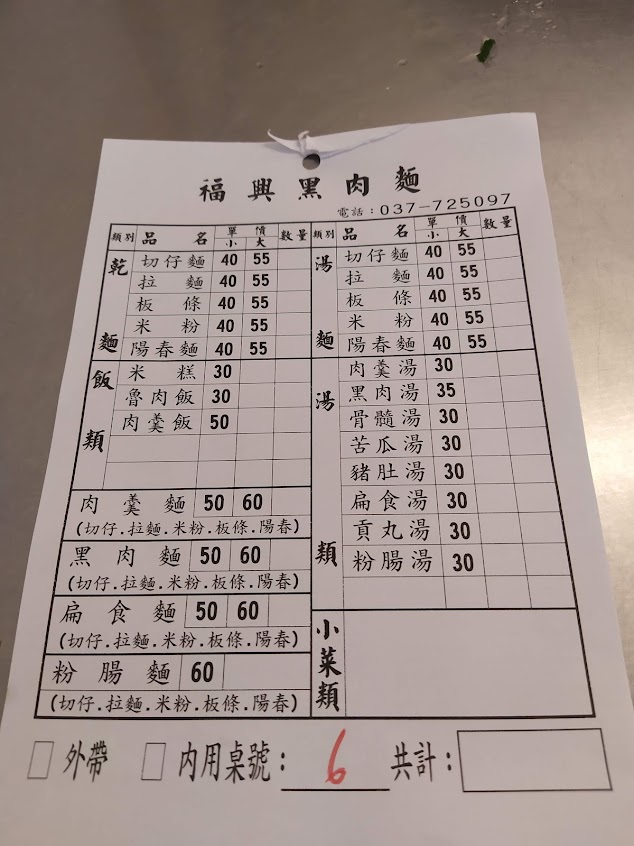 福興黑肉麵
電話：037-725097
類別 品名 單價 小 大 數量
乾麵
切仔麵 40 55
拉麵 40 55
板條 40 55
米粉 40 55
陽春麵 40 55
飯類
米糕 30
魯肉飯 30
肉羹飯 50
肉羹麵 50 60
(切仔.拉麵.米粉.板條.陽春)
黑肉麵 50 60
(切仔.拉麵.米粉.板條.陽春)
扁食麵 50 60
(切仔.拉麵.米粉.板條.陽春)
粉腸麵 60
(切仔.拉麵.米粉.板條.陽春)
類別 品名 單價 小 大 數量
湯麵
切仔麵 40 55
拉麵 40 55
板條 40 55
米粉 40 55
陽春麵 40 55
湯類
肉羹湯 30
黑肉湯 35
骨髓湯 30
苦瓜湯 30
豬肚湯 30
扁食湯 30
貢丸湯 30
粉腸湯 30
小菜類
外帶 內用桌號：6 共計：